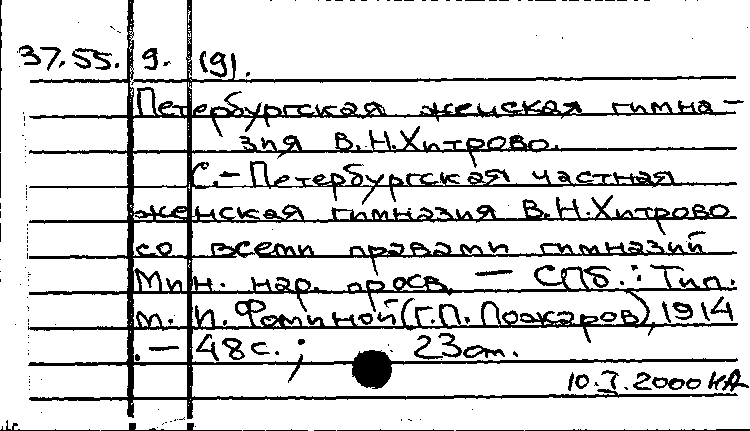 37.55. 9. (9).
Петербургская женская гимна-
зия В.Н.Хитрово.
С.-Петербургская частная
женская гимназия В.Н.Хитрово
со всеми правами гимназий
Мин. нар. просв. — СПб.: Тип.
М. И. Фоминой (Г.П. Пожаров), 1914
.— 48 с.; 23 см.
10.I.2000